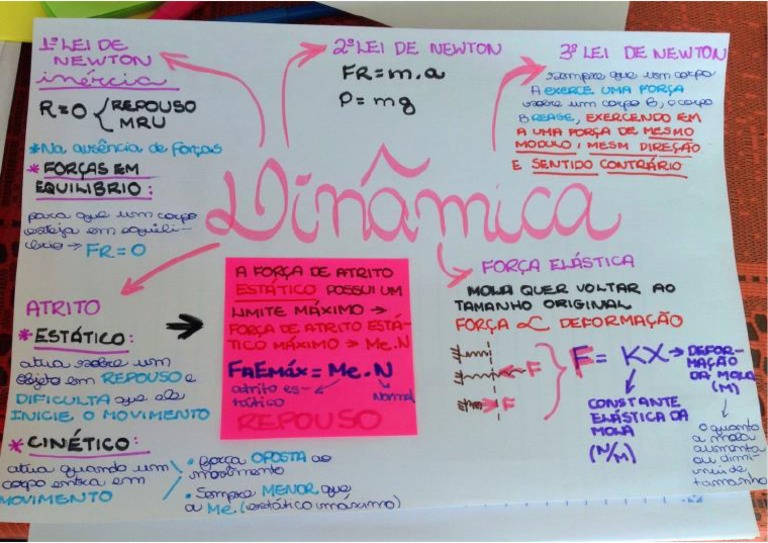 1ª LEI DE
NEWTON
inércia
R=0 { REPOUSO
MRU
*Na ausência de forças
* FORÇAS EM
EQUILIBRIO:
para que um corpo
esteja em equilí-
brio → FR=0
2ª LEI DE NEWTON
FR=m.a
P=mg
3ª LEI DE NEWTON
sempre que um corpo
A EXERCE UMA FORÇA
sobre um corpo B, o corpo
B REAGE, EXERCENDO EM
A UMA FORÇA DE MESMO
MODULO, MESM DIREÇÃO
E SENTIDO CONTRÁRIO
Dinâmica
ATRITO
* ESTÁTICO:
atua sobre um
objeto em REPOUSO e
DIFICULTA que ele
INICIE O MOVIMENTO
* CINÉTICO:
atua quando um
corpo entra em
MOVIMENTO
• força OPOSTA ao
movimento
• Sempre MENOR que
o Me. (estático máximo)
A FORÇA DE ATRITO
ESTÁTICO POSSUI UM
LIMITE MÁXIMO →
FORÇA DE ATRITO ESTÁ-
TICO MÁXIMO → Me.N
FAEMáx = Me.N
atrito es-
tático
Normal
REPOUSO
FORÇA ELÁSTICA
MOLA QUER VOLTAR AO
TAMANHO ORIGINAL
FORÇA ∝ DEFORMAÇÃO
F
F
F= KX → DEFOR-
MAÇÃO
DA MOLA
(M)
CONSTANTE
ELÁSTICA DA
MOLA
(N/M)
o quanto
a mola
aumenta
ou dimi-
nui de
tamanho